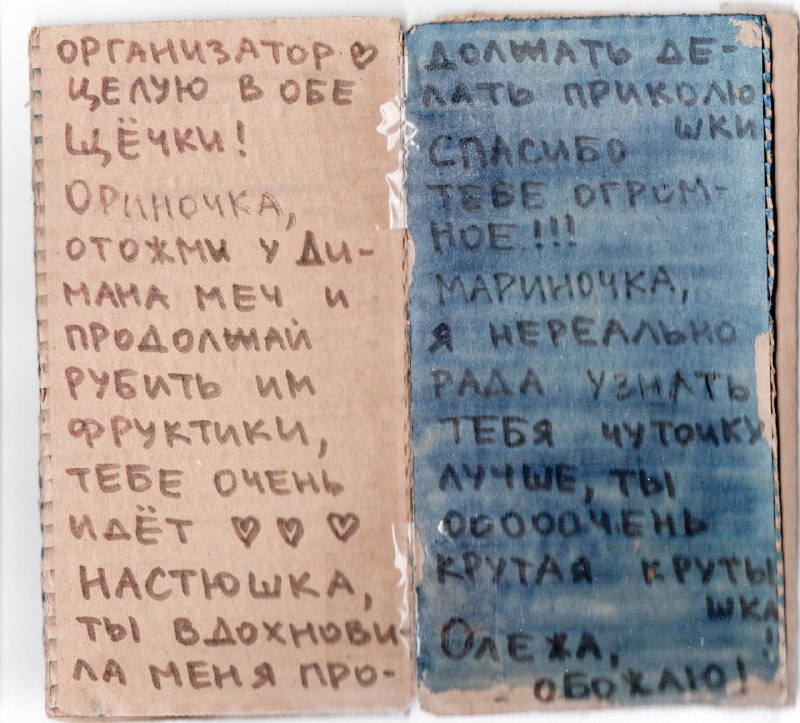 ОРГАНИЗАТОР ♡
ЦЕЛУЮ В ОБЕ
ЩЁЧКИ!
ОРИНОЧКА,
ОТОЖМИ У ДИ-
МАНА МЕЧ И
ПРОДОЛЖАЙ
РУБИТЬ ИМ
ФРУКТИКИ,
ТЕБЕ ОЧЕНЬ
ИДЁТ ♡ ♡ ♡
НАСТЮШКА,
ТЫ ВДОХНОВИ-
ЛА МЕНЯ ПРО-
ДОЛЖАТЬ ДЕ-
ЛАТЬ ПРИКОЛЮ
ШКИ
СПАСИБО
ТЕБЕ ОГРОМ-
НОЕ!!!
МАРИНОЧКА,
Я НЕРЕАЛЬНО
РАДА УЗНАТЬ
ТЕБЯ ЧУТОЧКУ
ЛУЧШЕ, ТЫ
ОООООЧЕНЬ
КРУТАЯ КРУТЫ
ШКА!
ОЛЕЖА,
ОБОЖАЮ!